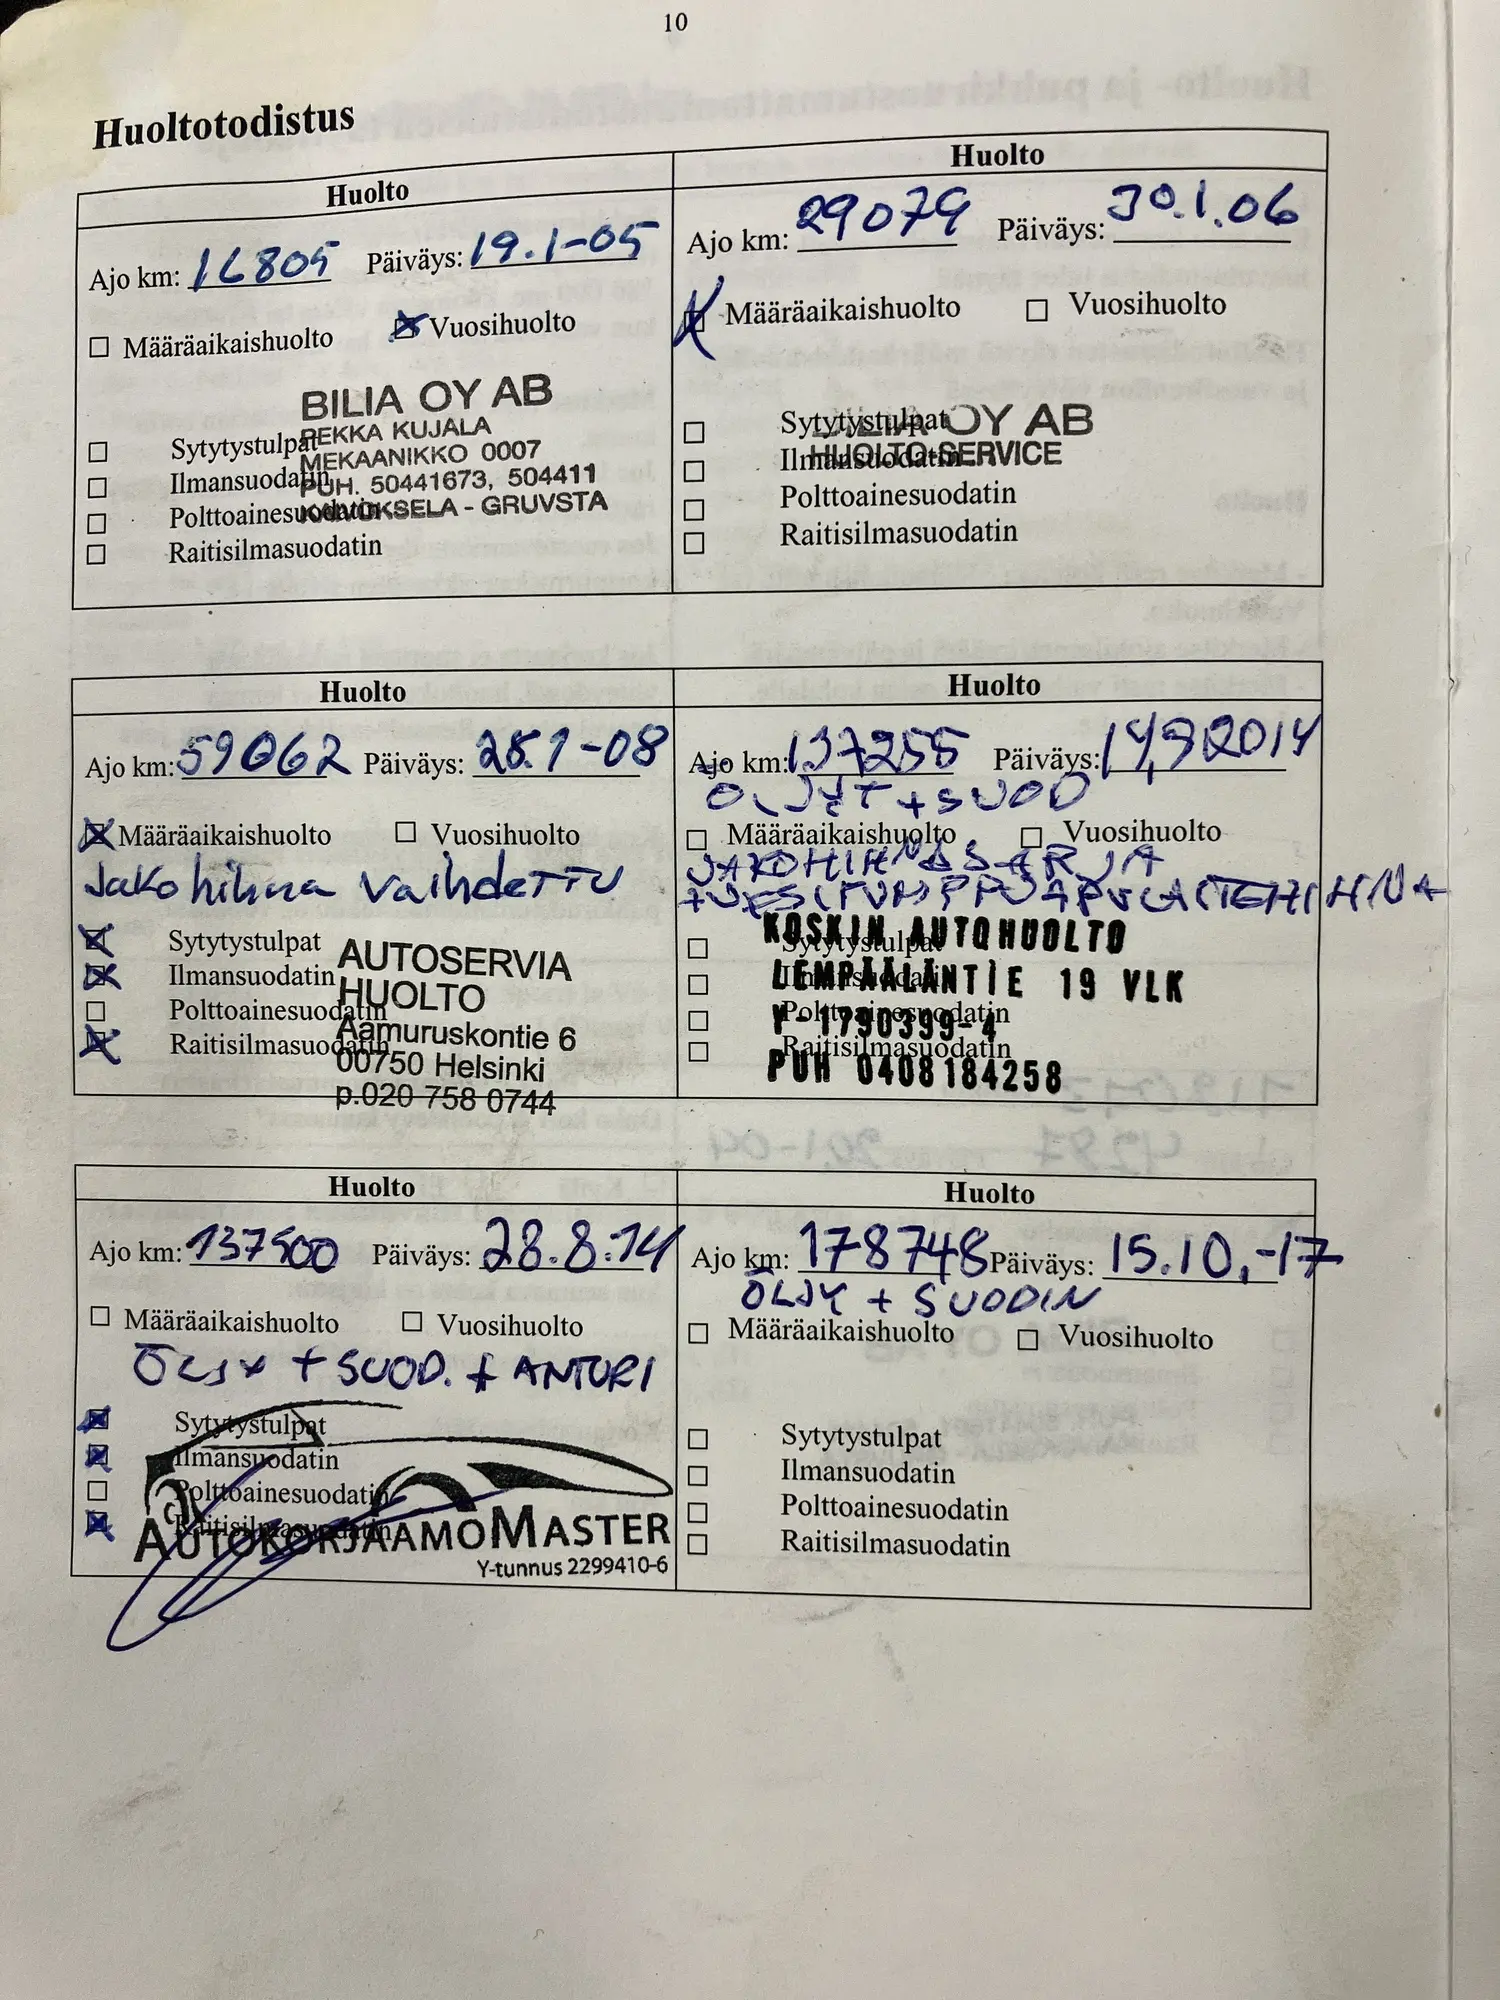 10
Huoltotodistus
Huolto
Ajo km: 16805 Päiväys: 19.1-05
Määräaikaishuolto Vuosihuolto
BILIA OY AB
PEKKA KUJALA
MEKAANIKKO 0007
PUH. 50441673, 504411
KAIVOKSELA - GRUVSTA
Sytytystulpat
Ilmansuodatin
Polttoainesuodatin
Raitisilmasuodatin
Huolto
Ajo km: 29079 Päiväys: 30.1.06
Määräaikaishuolto Vuosihuolto
BILIA OY AB
HUOLTO-SERVICE
Sytytystulpat
Ilmansuodatin
Polttoainesuodatin
Raitisilmasuodatin
Huolto
Ajo km: 59062 Päiväys: 25.1-08
Määräaikaishuolto Vuosihuolto
Jakohihna vaihdettu
Sytytystulpat
Ilmansuodatin
Polttoainesuodatin
Raitisilmasuodatin
AUTOSERVIA
HUOLTO
Aamuruskontie 6
00750 Helsinki
p.020 758 0744
Huolto
Ajo km: 137255 Päiväys: 14,9,2014
ÖLJYT + SUOD
Määräaikaishuolto Vuosihuolto
JAKOHIHNASARJA
+ VESIPUMPPU APULAITEHIHNA
KOSKIN AUTOHUOLTO
LEMPÄÄLÄNTIE 19 VLK
Y-1790399-4
PUH 0408184258
Sytytystulpat
Ilmansuodatin
Polttoainesuodatin
Raitisilmasuodatin
Huolto
Ajo km: 137500 Päiväys: 28.8.14
Määräaikaishuolto Vuosihuolto
ÖLJY + SUOD. + ANTURI
Sytytystulpat
Ilmansuodatin
Polttoainesuodatin
Raitisilmasuodatin
AUTOKORJAAMOMASTER
Y-tunnus 2299410-6
Huolto
Ajo km: 178748 Päiväys: 15.10,-17
ÖLJY + SUODIN
Määräaikaishuolto Vuosihuolto
Sytytystulpat
Ilmansuodatin
Polttoainesuodatin
Raitisilmasuodatin